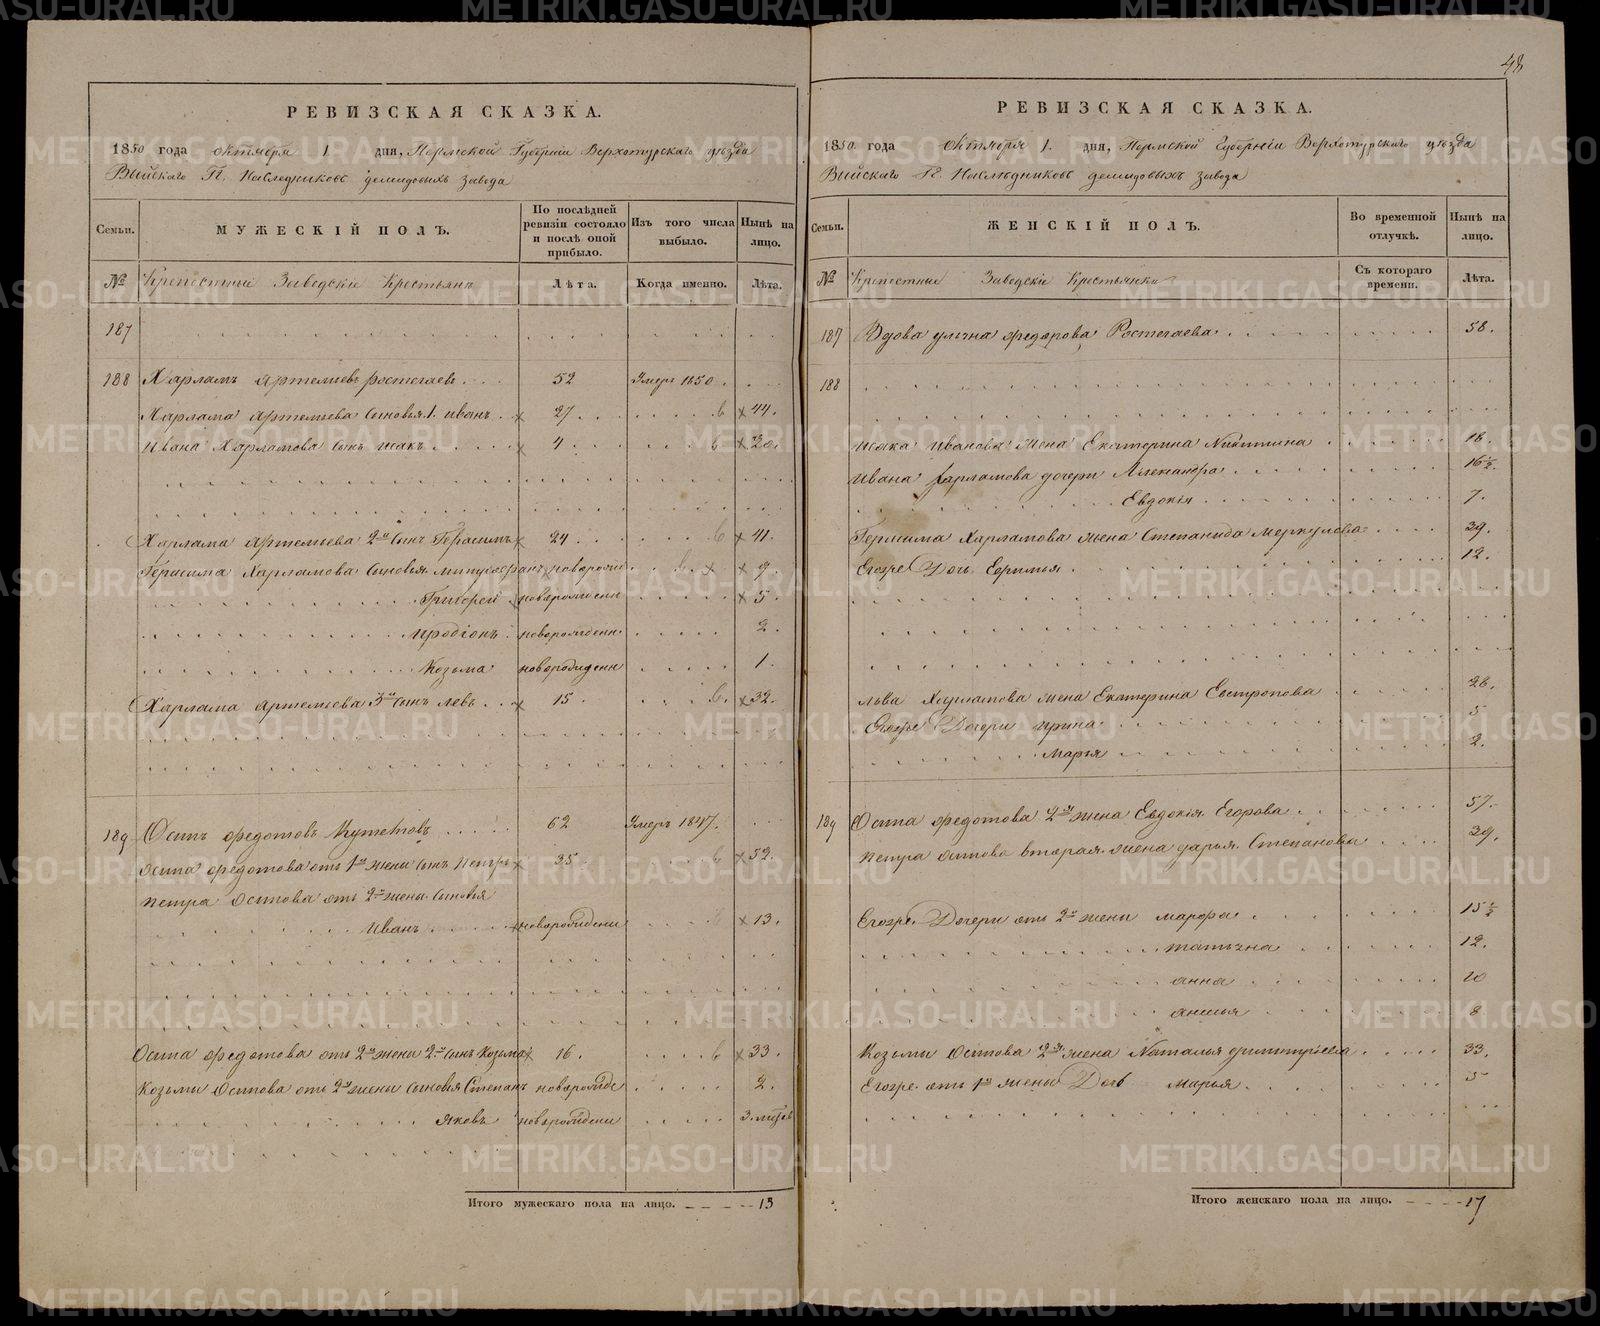 48
РЕВИЗСКАЯ СКАЗКА.
1850 года октября 1 дня, Пермской Губерніи Верхотурскаго уезда
Выйскаго Гг. Наследниковъ демидовыхъ завода
Семьи.
МУЖЕСКІЙ ПОЛЪ.
По послѣдней ревизіи состояло и послѣ оной прибыло.
Изъ того числа выбыло.
Нынѣ на лицо.
№ Крепостные Заводскіе Крестьяне
Лѣта. Когда именно. Лѣта.
187
188 Харламъ Артемьевъ 52 Умеръ 1850.
Харлама Артемьева сыновья 1. иванъ 27 44.
Ивана Харламова сынъ 4 20.
Харлама Артемьева 2й сынъ Герасимъ 24 41.
Герасима Харламова сыновья новорожд. 9.
Григорей новорожденн 5.
иродіонъ новорожденн. 2.
Козьма новорожденн 1.
Харлама артемьева 3й сынъ левъ 15. 32.
189 Осипъ федотовъ 62 Умеръ 1847.
осипа федотова отъ 1й жены сынъ Петръ 35 52.
петра осипова отъ 2й жены сыновья
Иванъ новорожденн 13.
Осипа федотова отъ 2й жены 2й сынъ Козьма 16. 33.
Козьмы Осипова отъ 2й жены сыновья Степанъ новорожде 2.
яковъ новорожденн
Итого мужескаго пола на лицо. 13
РЕВИЗСКАЯ СКАЗКА.
1850 года октября 1 дня, Пермской Губерніи Верхотурскаго уезда
Выйскаго Гг. Наследниковъ демидовыхъ завода
Семьи.
ЖЕНСКІЙ ПОЛЪ.
Во временной отлучкѣ.
Нынѣ на лицо.
№ Крепостные Заводскіе Крестьянки
Съ котораго времени. Лѣта.
187 Вдова федорова 58.
188
Иванова жена Екатерина Никитина 18.
ивана Харламова дочери Александра 16½
Евдокія 7.
Герасима Харламова жена Степанида меркулова 39.
Его Дочь Ефимья 12.
льва Харламова жена Екатерина 28.
Дочери ирина 5
Марья 2.
189 Осипа федотова 2я жена Евдокія Егорова 57.
петра осипова вторая жена дарья Степанова 39.
Дочери отъ 2й жены марфа 15½
татьяна 12.
анна 10
8
Козьмы Осипова 2я жена Наталья димитріева 33.
отъ 1й жены Дочь марья 5
Итого женскаго пола на лицо. 17
METRIKI.GASO-URAL.RU